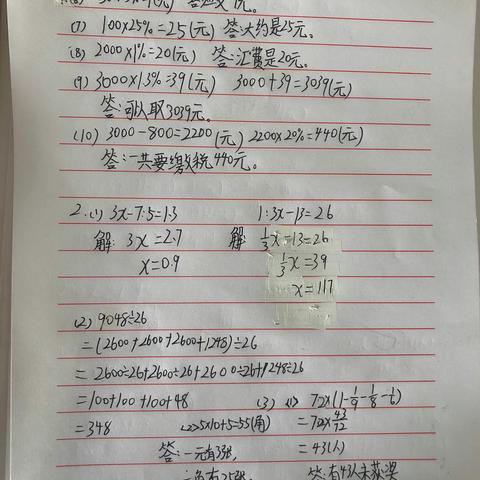 (7) 100×25%=25(元) 答:大约是25元。
(8) 2000×1%=20(元) 答:汇费是20元。
(9) 3000×1.3%=39(元) 3000+39=3039(元)
答:可以取3039元。
(10) 3000-800=2200(元) 2200×20%=440(元)
答:一共要缴税440元。
2.(1) 3x-7.5=1.3 1:3x-13=26
解: 3x=2.7 解: 1/3x-13=26
x=0.9 1/3x=39
x=117
(2) 9048÷26
=(2600+2600+2600+1248)÷26
=2600÷26+2600÷26+2600÷26+1248÷26
=100+100+100+48 (3) (1) 72×(1-1/9-1/8-1/6)
=348 (2) 5×10+5=55(角) =72×43/72
答:一元有33张, =43(人)
答:有43人未获奖